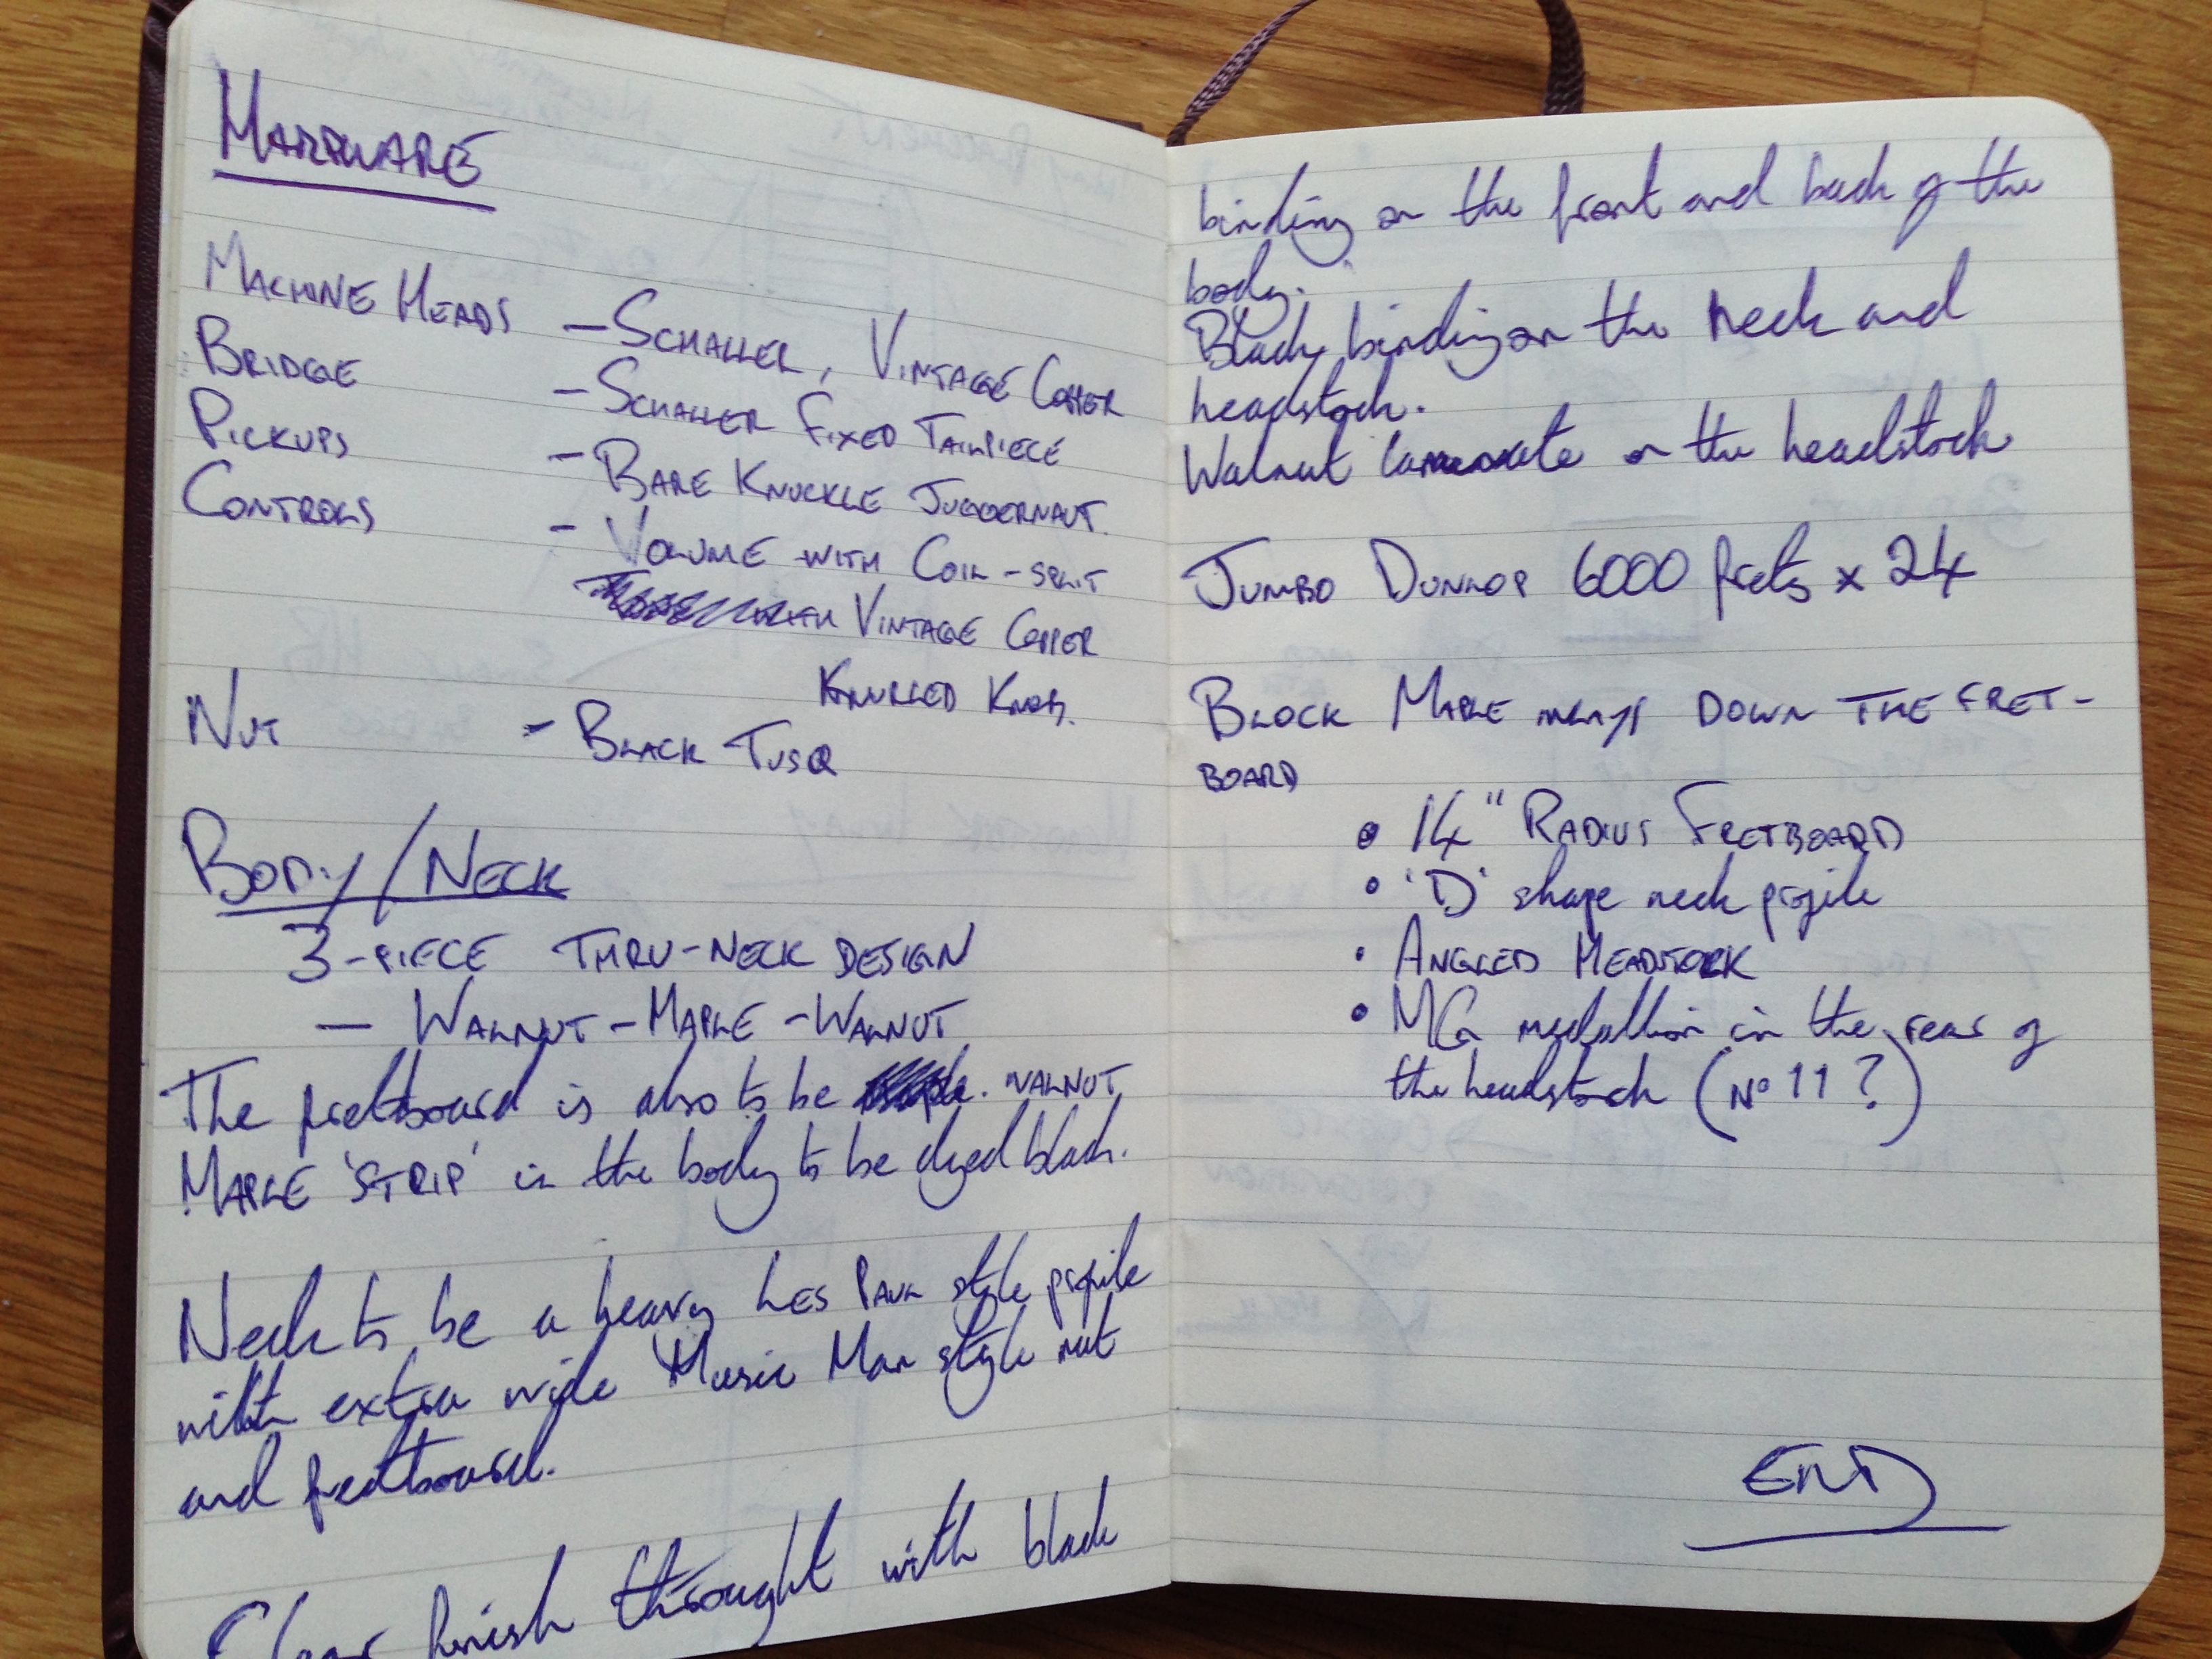 HARDWARE
MACHINE HEADS - SCHALLER, VINTAGE COPPER
BRIDGE - SCHALLER FIXED TAILPIECE
PICKUPS - BARE KNUCKLE JUGGERNAUT.
CONTROLS - VOLUME WITH COIL-SPLIT
WITH VINTAGE COPPER
KNURLED KNOBS.
NUT - BLACK TUSQ
BODY/NECK
3-PIECE THRU-NECK DESIGN
- WALNUT-MAPLE-WALNUT
The fretboard is also to be WALNUT
MAPLE 'STRIP' in the body to be dyed black.
Neck to be a heavy LES PAUL style profile
with extra wide Music Man style nut
and fretboard.
Clear finish throught with black
binding on the front and back of the
body.
Black binding on the neck and
headstock.
Walnut laminate on the headstock
JUMBO DUNLOP 6000 frets x 24
BLOCK MAPLE inlays DOWN THE FRET-
BOARD
• 14" RADIUS FRETBOARD
• 'D' shape neck profile
• ANGLED HEADSTOCK
• MG medallion in the rear of
the headstock (Nº 11?)
END